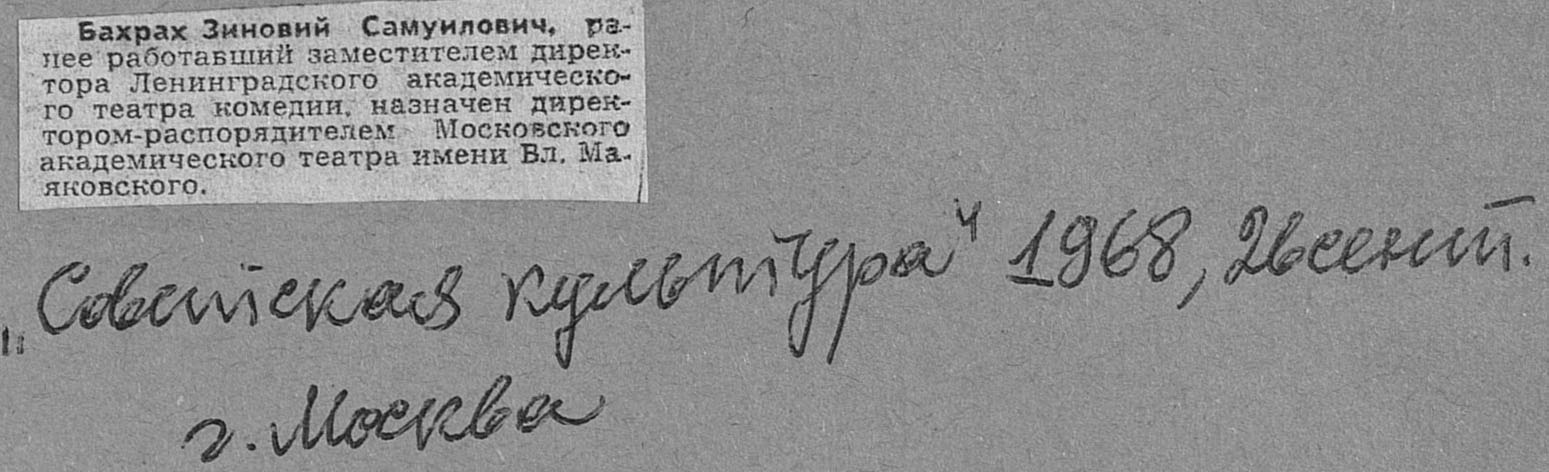 Бахрах Зиновий Самуилович, ра-
нее работавший заместителем дирек-
тора Ленинградского академическо-
го театра комедии, назначен дирек-
тором-распорядителем Московского
академического театра имени Вл. Ма-
яковского.
„Советская культура" 1968, 26 сент.
г. Москва